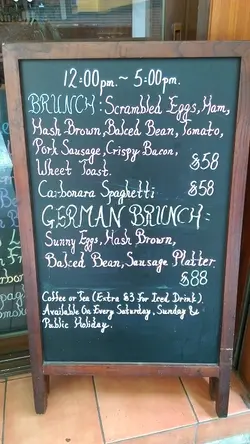 12:00pm. ~ 5:00pm.
BRUNCH: Scrambled Eggs, Ham,
Hash Brown, Baked Bean, Tomato,
Pork Sausage, Crispy Bacon,
Wheet Toast. $58
Carbonara Spaghetti $58
GERMAN BRUNCH:
Sunny Eggs, Hash Brown,
Baked Bean, Sausage Platter.
$88
Coffee or Tea (Extra $3 For Iced Drink).
Available On Every Saturday, Sunday &
Public Holiday.